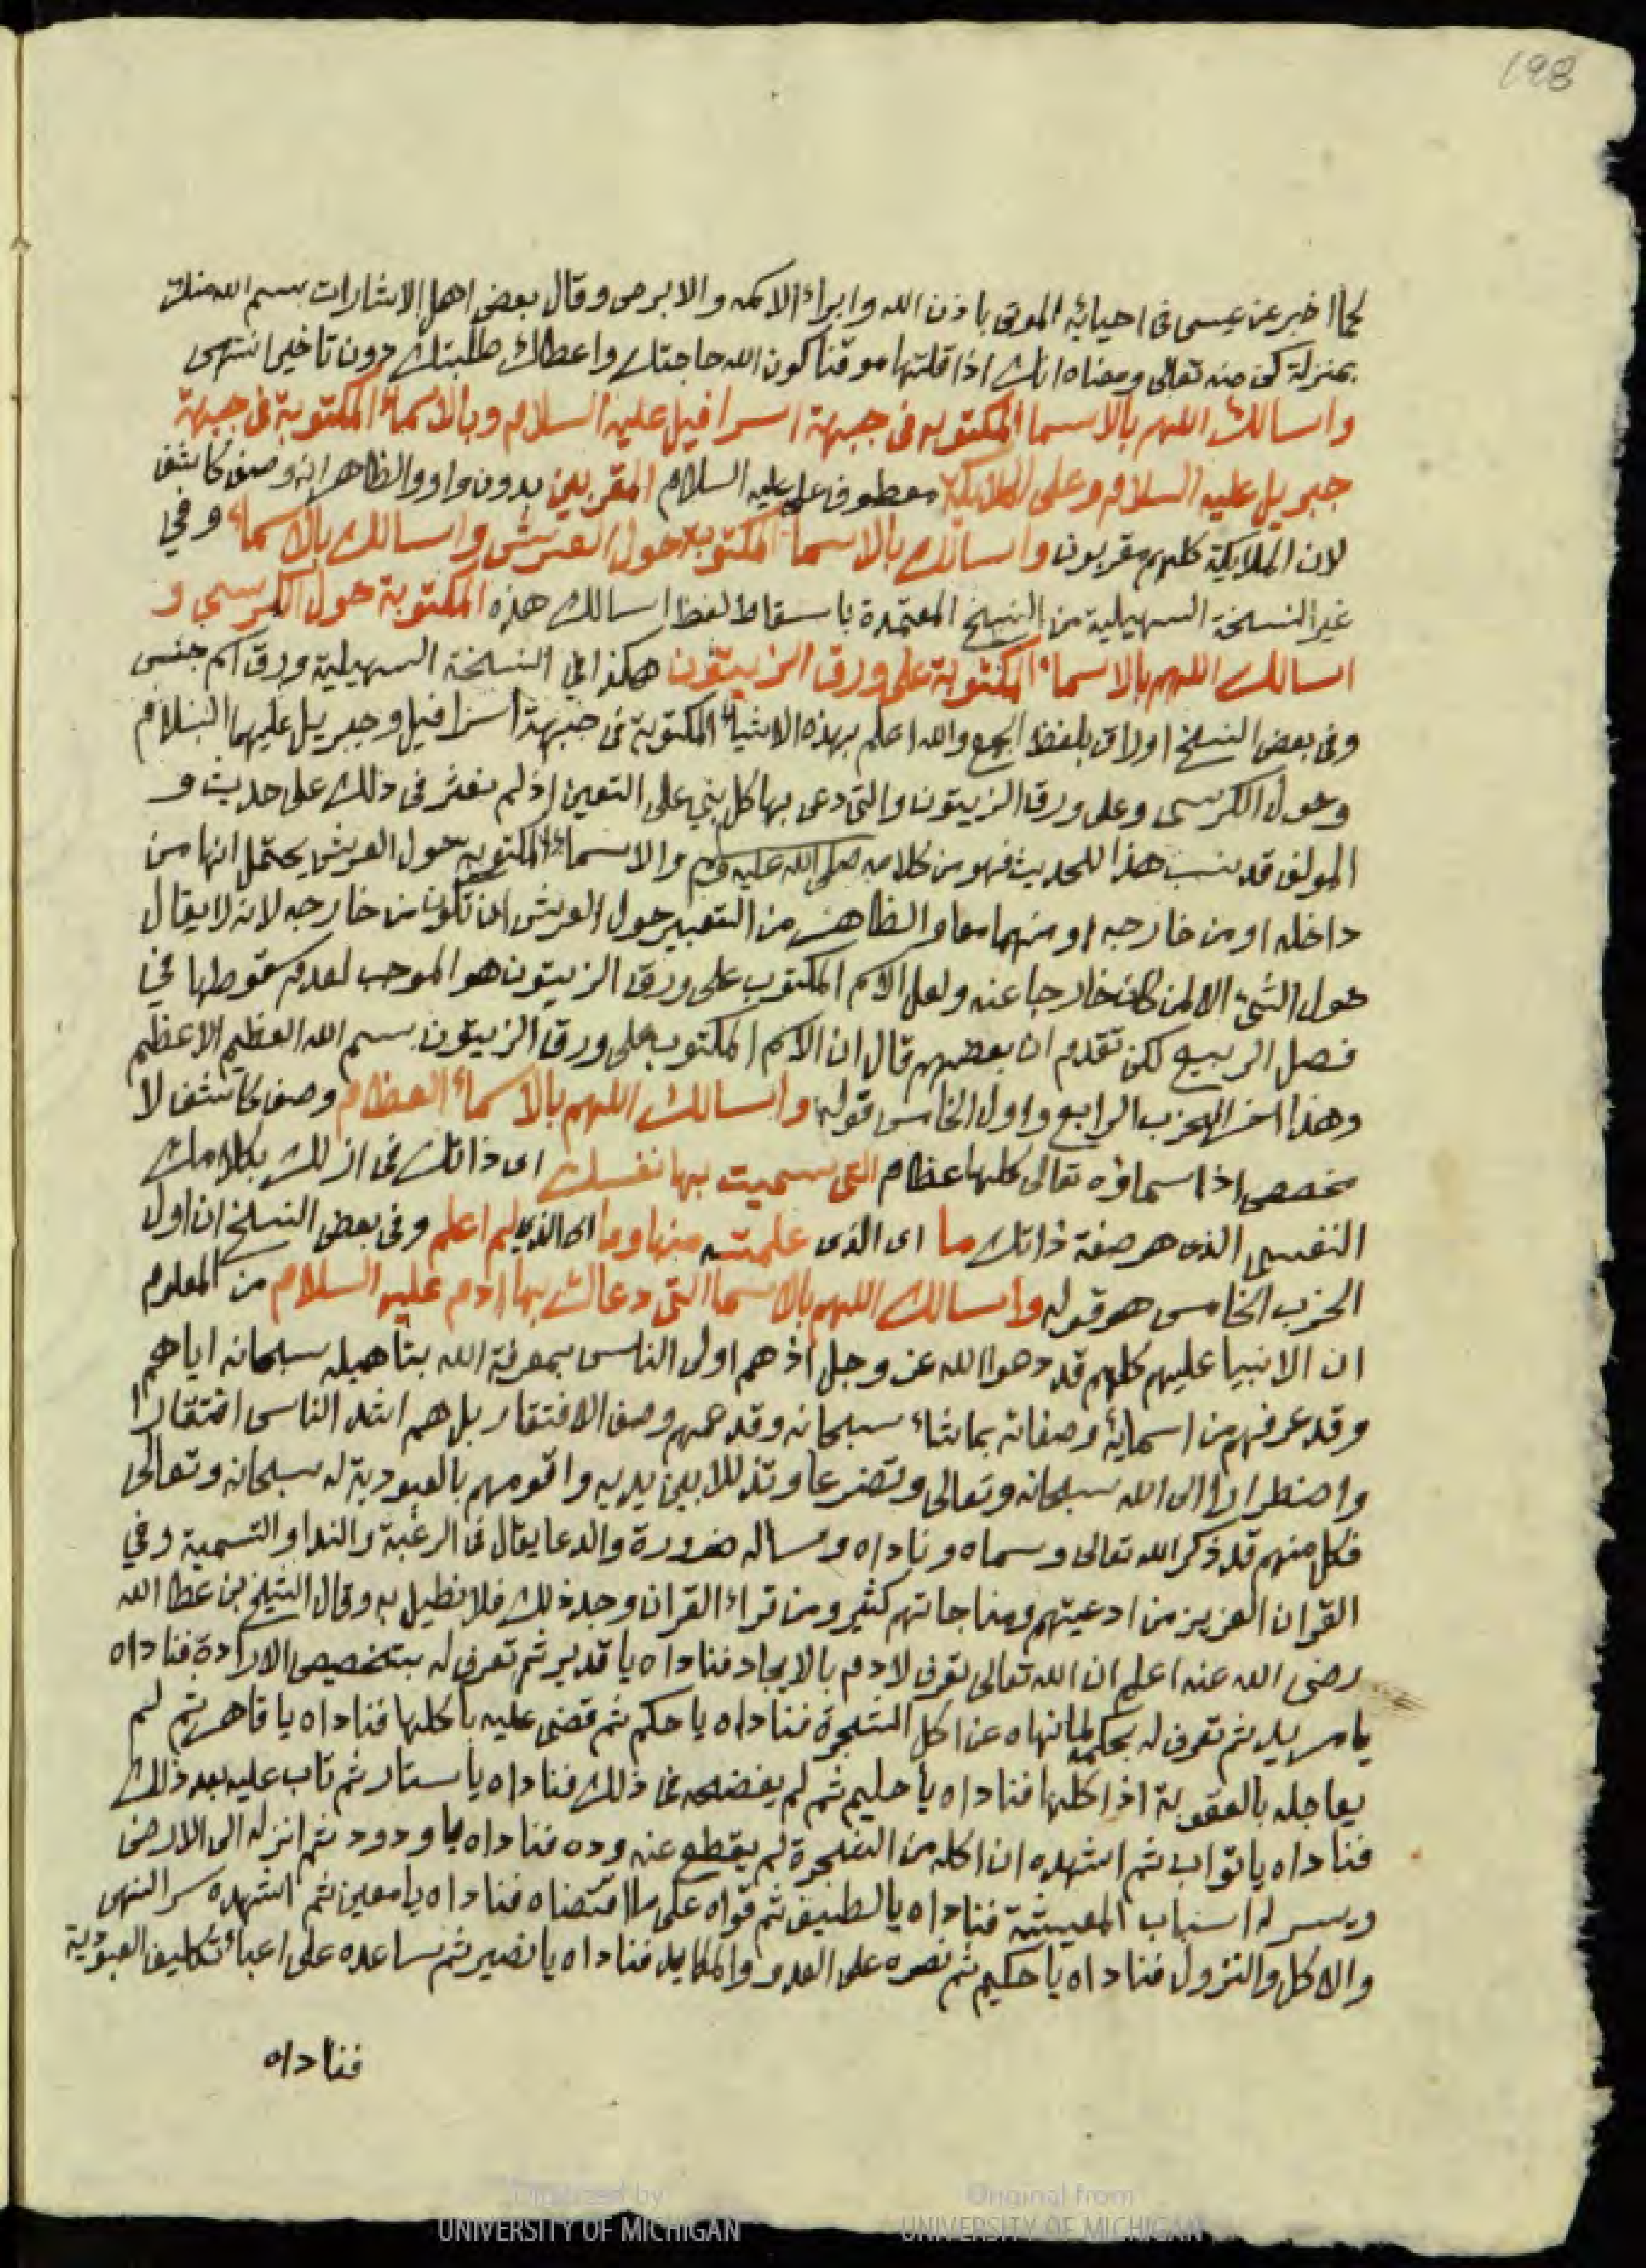 198
كما اخبر عن عيسى فى احيائه الموتى باذن الله وابراء الاكمه والابرص وقال بعض اهل الاشارات بسم الله منك
بمنزلة كن منه تعالى ومعناه انك اذا قلتها موقنا كون الله حاجتك واعطاك طلبتك دون تاخير انتهى
واسالك اللهم بالاسما المكتوبه فى جبهة اسرافيل عليه السلام وبالاسماء المكتوبة فى جبهة
جبريل عليه السلام وعلى الملايكة معطوف على عليه السلام المقربين بدون واو والظاهر انه وصف كاشف
لان الملايكة كلهم مقربون واسالك بالاسماء المكتوبة حول العرش واسالك بالاسماء وفي
غير النسخة السهيلية من النسخ المعتمدة باسقاط لفظ اسالك هذه المكتوبة حول الكرسى و
اسالك اللهم بالاسماء المكتوبة على ورق الزيتون هكذا فى النسخة السهيلية ورق اسم جنس
وفى بعض النسخ اوراق بلفظ الجمع والله اعلم بهذه الاشياء المكتوبة فى جبهة اسرافيل وجبريل عليهما السلام
وحول الكرسى وعلى ورق الزيتون والتى دعى بها كل نبي على التعين اذ لم نعثر فى ذلك على حديث و
المولف قد ينسب هذا للحديث فهو من كلامه صلى الله عليه وسلم والاسماء المكتوبه حول العرش يحتمل انها من
داخله او من خارجه او منهما معا والظاهر من التعبير حول العرش ان تكون من خارجه لانه لا يقال
حول الشئ الا لمن كان خارجا عنه ولعل الاسم المكتوب على ورق الزيتون هو الموجب لعدم سقوطها في
فصل الربيع لكن تقدم ان بعضهم قال ان الاسم المكتوب على ورق الزيتون بسم الله العظيم الاعظم
وهذا اخر الحزب الرابع واول الخامس قوله واسالك اللهم بالاسماء العظام وصف كاشف لا
مخصص اذ اسماؤه تعالى كلها عظام التى سميت بها نفسك اى ذاتك فى ازلك بكلامك
النفسى الذى هو صفة ذاتك ما اى الذى علمت منها وما اى الذى لم اعلم وفى بعض النسخ ان اول
الحزب الخامس هو قوله واسالك اللهم بالاسما التى دعاك بها ادم عليه السلام من المعلوم
ان الانبيا عليهم كلهم قد دعوا الله عز وجل اذ هم اولى الناس بمعرفة الله بتاهيله سبحانه اياهم
وقد عرفهم من اسمايه وصفاته بما شاء سبحانه وقد عمهم وصف الافتقار بل هم اشد الناس افتقارا
واضطرارا الى الله سبحانه وتعالى وتضرعا وتذللا بين يديه واقومهم بالعبودية له سبحانه وتعالى
فكل منهم قد ذكر الله تعالى وسماه وناداه وساله ضرورة والدعا يقال فى الرغبة والندا والتسمية وفي
القران العزيز من ادعيتهم ومناجاتهم كثير ومن قراء القران وجد ذلك فلا نطيل به وقال الشيخ بن عطا الله
رضى الله عنه اعلم ان الله تعالى تعرف لادم بالايجاد فناداه يا قدير ثم تعرف له بتخصيص الارادة فناداه
يا مريد ثم تعرف له بحكمه لما نهاه عن اكل الشجرة فناداه يا حكم ثم قضى عليه باكلها فناداه يا قاهر ثم لم
يعاجله بالعقوبة اذ اكلها فناداه يا حليم ثم لم يفضحه فى ذلك فناداه يا ستار ثم تاب عليه بعد ذلك
فناداه يا تواب ثم اشهده ان اكله من الشجرة لم يقطع عنه وده فناداه يا ودود ثم انزله الى الارض
ويسر له اسباب المعيشة فناداه يا لطيف ثم قواه على ما اقتضاه فناداه يا معين ثم اشهده سر النهى
والاكل والنزول فناداه يا حكيم ثم نصره على العدو والمكايد فناداه يا نصير ثم ساعده على اعباء تكليف العبودية
فناداه
Digitized by
UNIVERSITY OF MICHIGAN
Original from
UNIVERSITY OF MICHIGAN